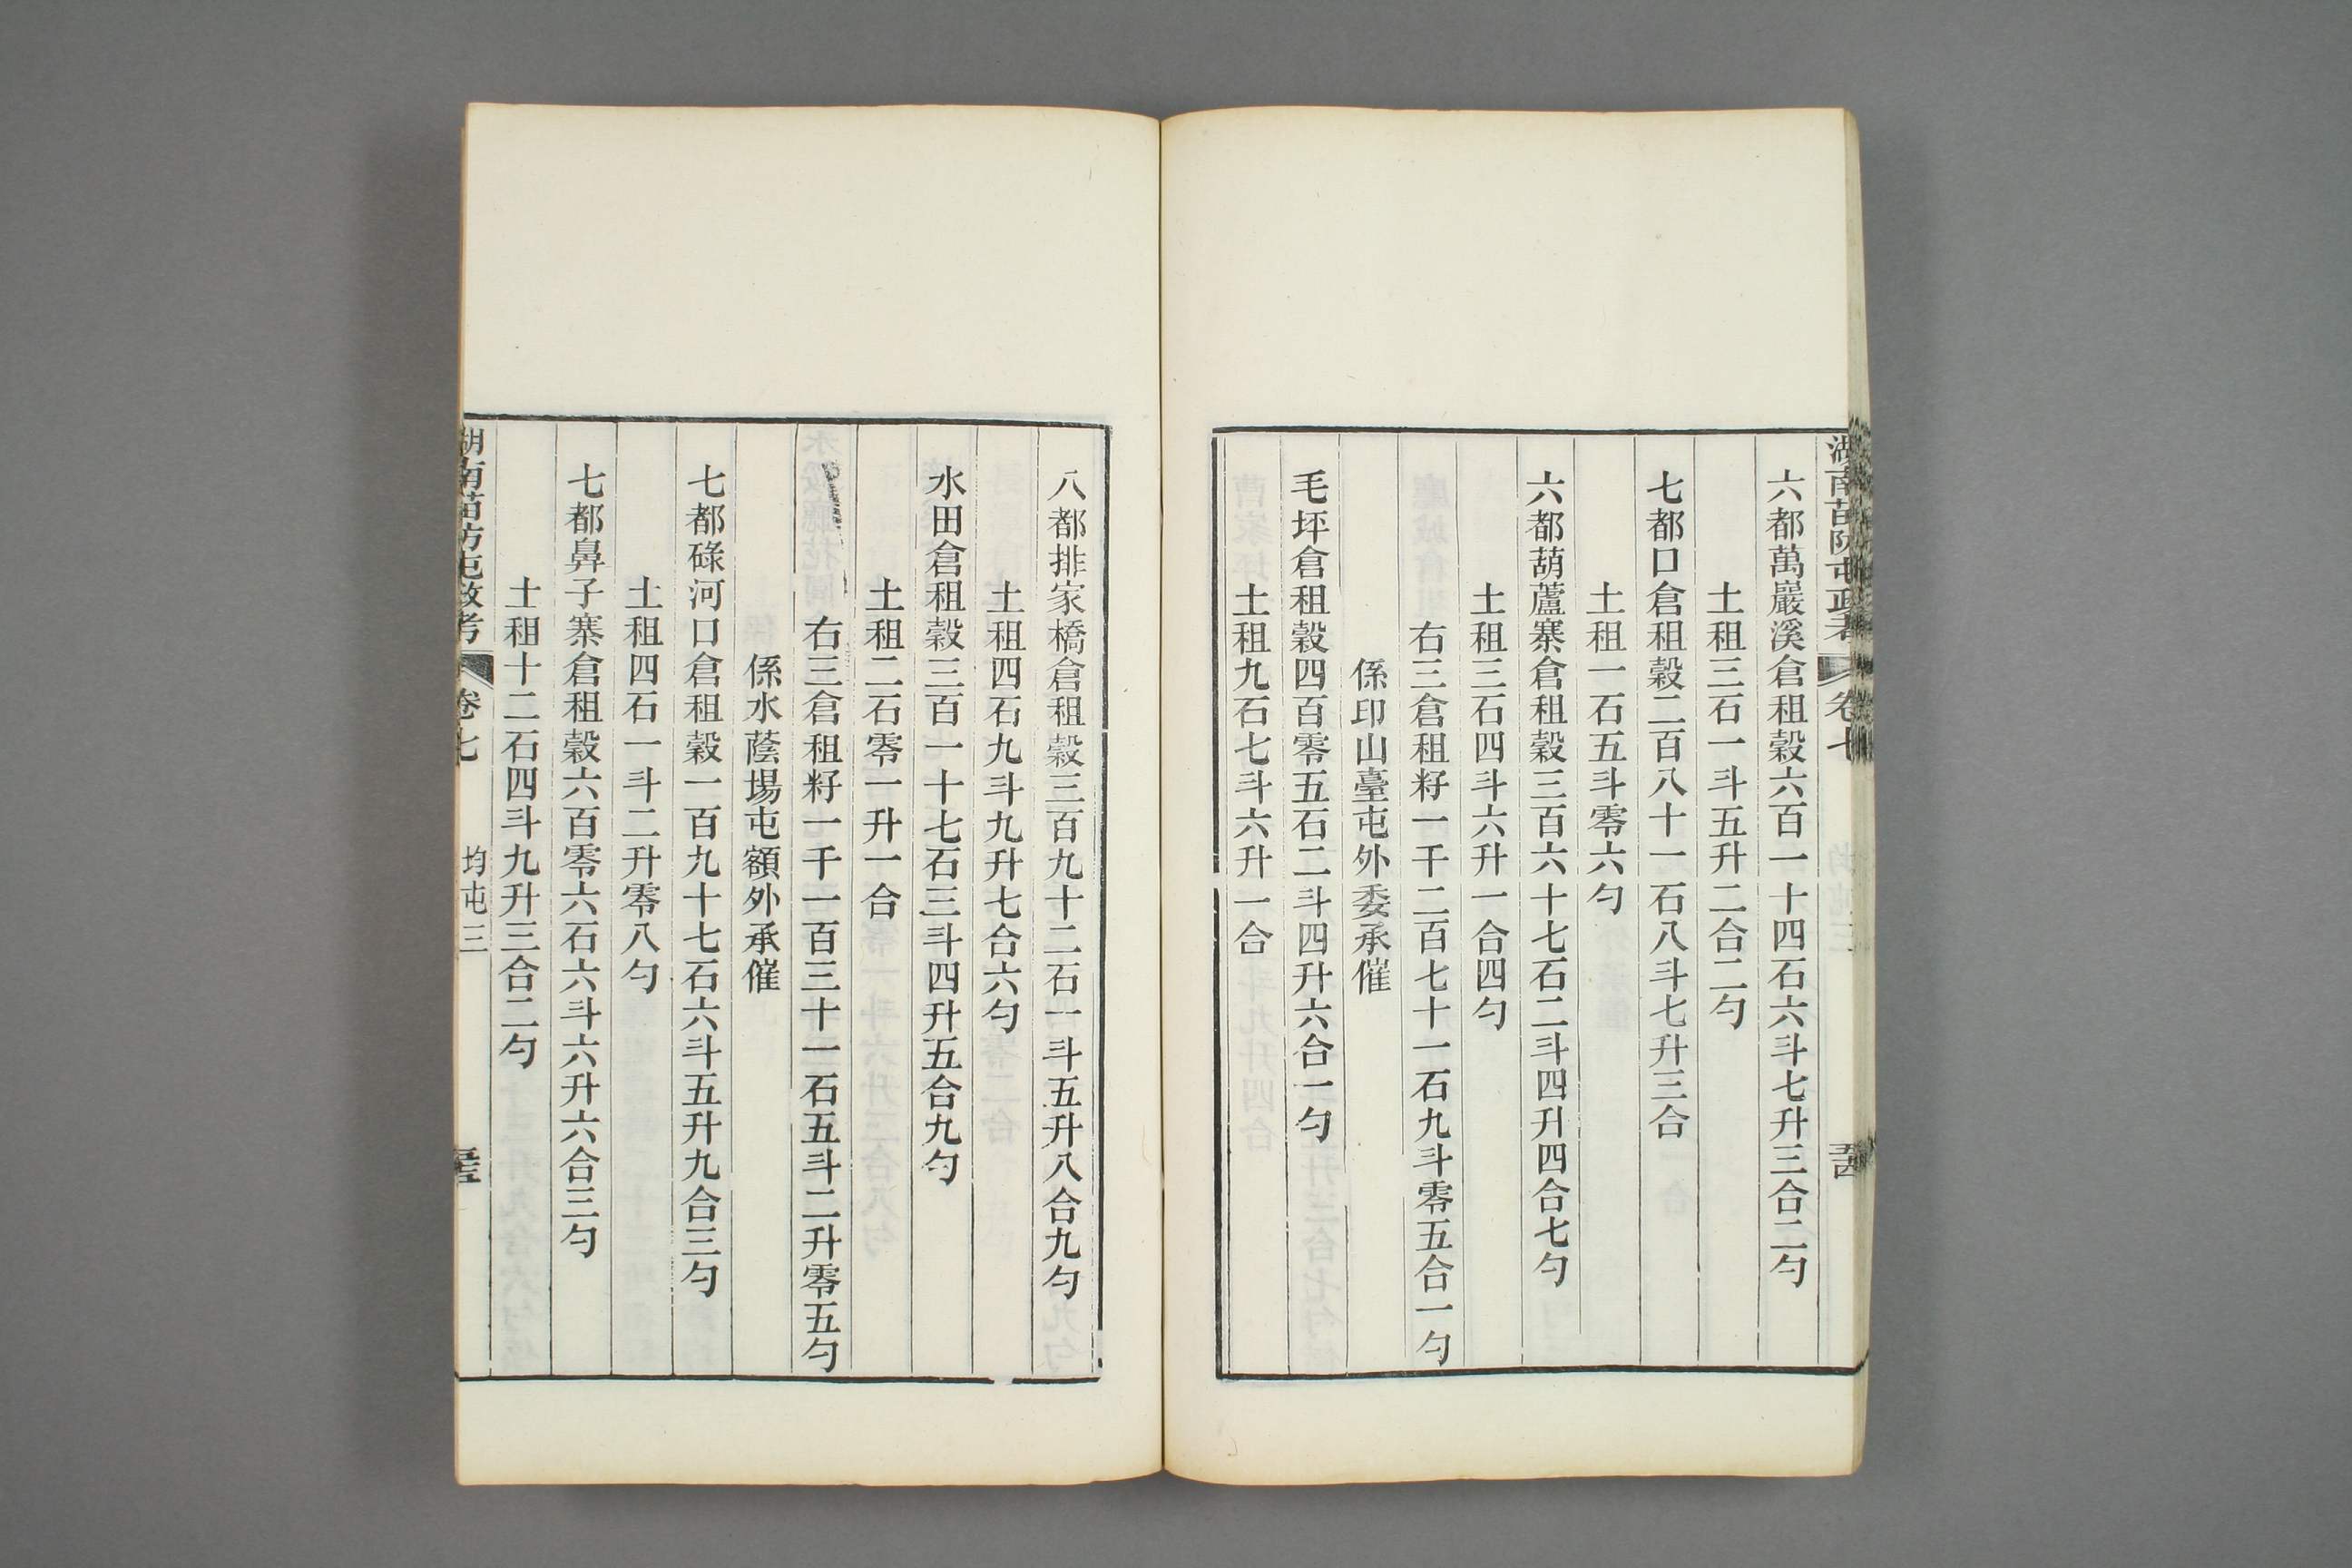 湖南苗防屯政考
卷七
五十四
六都萬巖溪倉租穀六百一十四石六斗七升三合二勺
土租三石一斗五升二合二勺
七都口倉租穀二百八十一石八斗七升三合
土租一石五斗零六勺
六都葫蘆寨倉租穀三百六十七石二斗四升四合七勺
土租三石四斗六升一合四勺
右三倉租籽一千二百七十一石九斗零五合一勺
係印山臺屯外委承催
毛坪倉租穀四百零五石二斗四升六合一勺
土租九石七斗六升一合
八都排家橋倉租穀三百九十二石一斗五升八合九勺
土租四石九斗九升七合六勺
水田倉租穀三百一十七石三斗四升五合九勺
土租二石零一升一合
右三倉租籽一千一百三十一石五斗二升零五勺
係水蔭場屯額外承催
七都碌河口倉租穀一百九十七石六斗五升九合三勺
土租四石一斗二升零八勺
七都鼻子寨倉租穀六百零六石六斗六升六合三勺
土租十二石四斗九升三合二勺
湖南苗防屯政考
卷七
均屯三
五十五